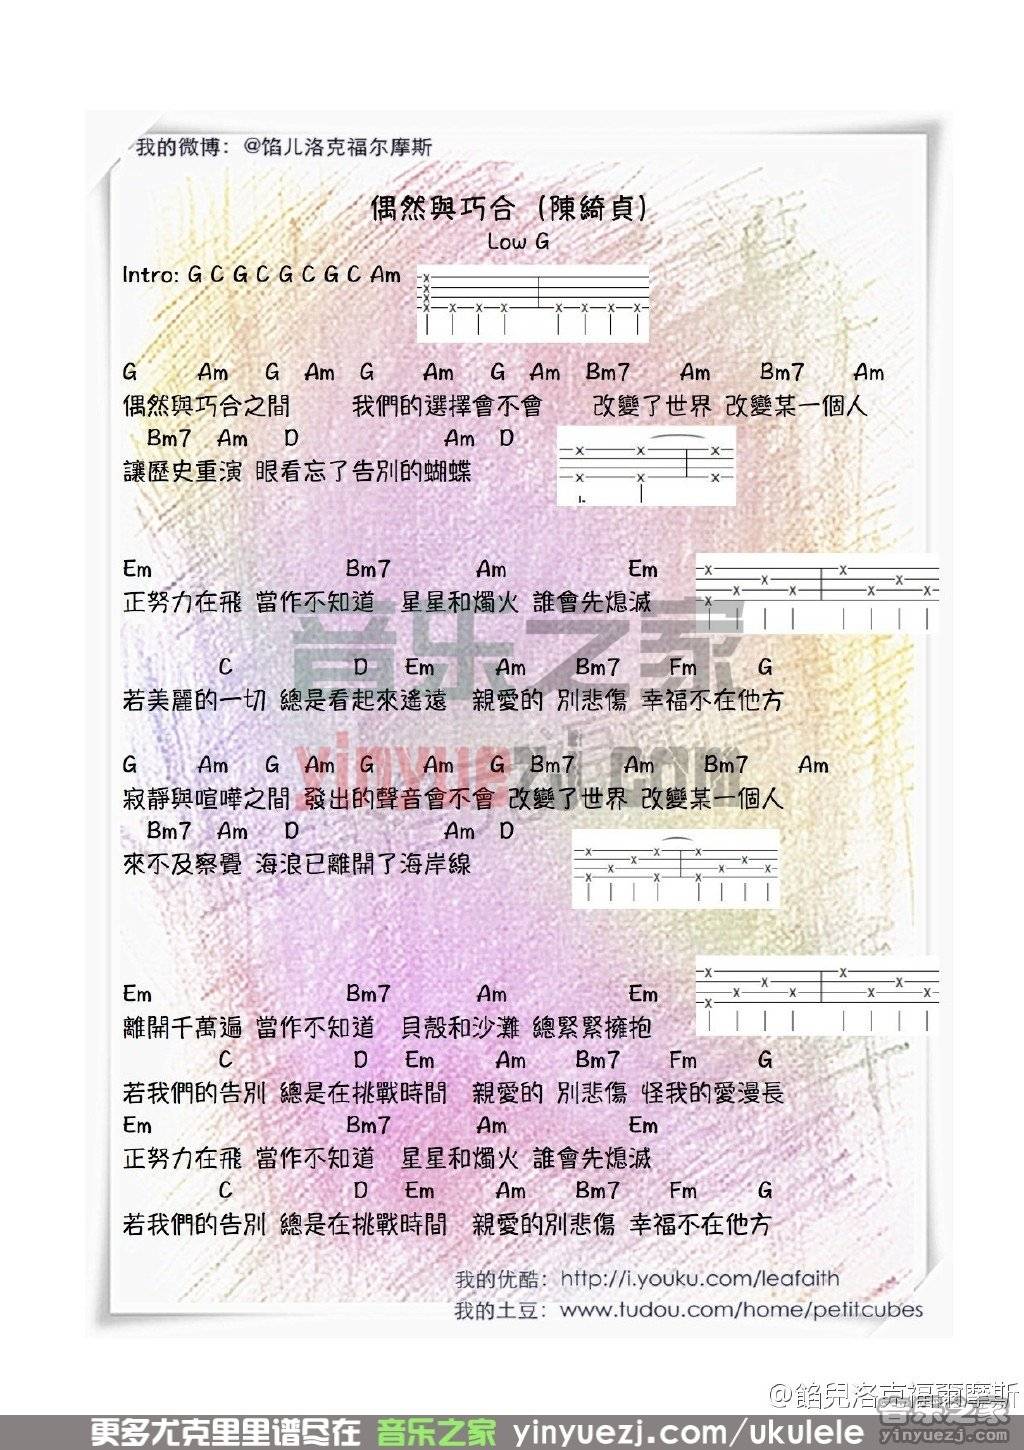 我的微博：@馅儿洛克福尔摩斯
偶然與巧合（陳綺貞）
Low G
Intro: G C G C G C G C Am
G Am G Am G Am G Am Bm7 Am Bm7 Am
偶然與巧合之間 我們的選擇會不會 改變了世界 改變某一個人
Bm7 Am D Am D
讓歷史重演 眼看忘了告別的蝴蝶
Em Bm7 Am Em
正努力在飛 當作不知道 星星和燭火 誰會先熄滅
音乐之家
C D Em Am Bm7 Fm G
若美麗的一切 總是看起來遙遠 親愛的 別悲傷 幸福不在他方
yinyuezj.com
G Am G Am G Am G Bm7 Am Bm7 Am
寂靜與喧嘩之間 發出的聲音會不會 改變了世界 改變某一個人
Bm7 Am D Am D
來不及察覺 海浪已離開了海岸線
Em Bm7 Am Em
離開千萬遍 當作不知道 貝殼和沙灘 總緊緊擁抱
C D Em Am Bm7 Fm G
若我們的告別 總是在挑戰時間 親愛的 別悲傷 怪我的愛漫長
Em Bm7 Am Em
正努力在飛 當作不知道 星星和燭火 誰會先熄滅
C D Em Am Bm7 Fm G
若我們的告別 總是在挑戰時間 親愛的別悲傷 幸福不在他方
我的优酷：http://i.youku.com/leafaith
我的土豆：www.tudou.com/home/petitcubes
@餡兒洛克福爾摩斯
音乐之家
yinyuezj.com
更多尤克里里谱尽在 音乐之家 yinyuezj.com/ukulele